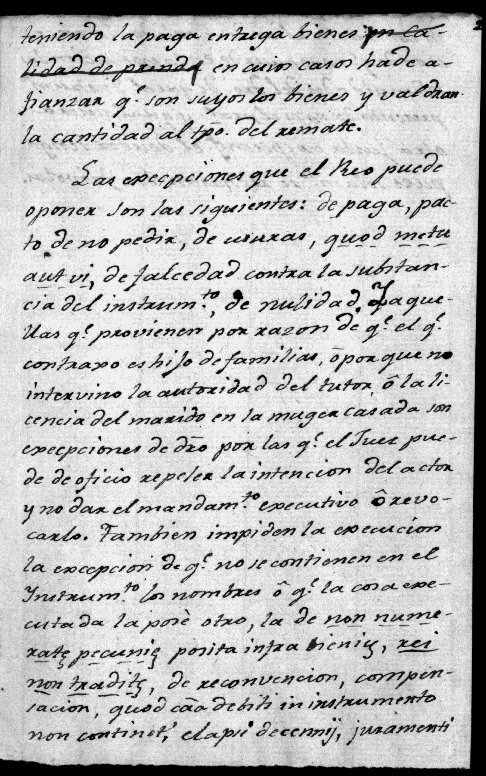 teniendo la paga entrega bienes en ca-
lidad de prenda en cuios casos hade a-
fianzar q.e son suyos los bienes y valdran
la cantidad al tpo. del remate.
Las execpciones que el Reo puede
oponer son las siguientes: de paga, pac-
to de no pedir, de usuras, quod metu
aut vi, de falcedad contra la substan-
cia del instrum.to, de nulidad, y aque-
llas q.e provienen por razon de q.e el q.e
contraxo es hijo de familias, ô por que no
intervino la autoridad del tutor ô la li-
cencia del marido en la muger casada son
execpciones de dro por las q.e el Juez pue-
de de oficio repeler la intencion del actor
y no dar el mandam.to executivo ô revo-
carlo. Tambien impiden la execucion
la excepcion de q.e no se contienen en el
Instrum.to los nombres ô q.e la cosa exe-
cutada la posè otro, la de non nume-
ratę pecunię posita infra bienių, rei
non traditę, de reconvencion, compen-
sacion, quod caã debiti in instrumento
non continet.r elapsi decennij, juramenti